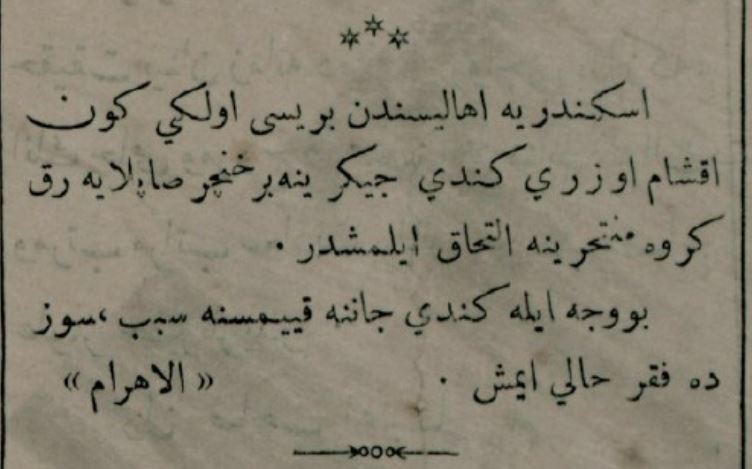 اسكندريه اهاليسندن بريسى اولكي كون
اقشام اوزري كندي جيكرينه بر خنچر صاپلايه رق
كروه منتحرينه التحاق ايلمشدر .
بووجه ايله كندي جاننه قييمسنه سبب ،سوز
ده فقر حالي ايمش . « الاهرام »